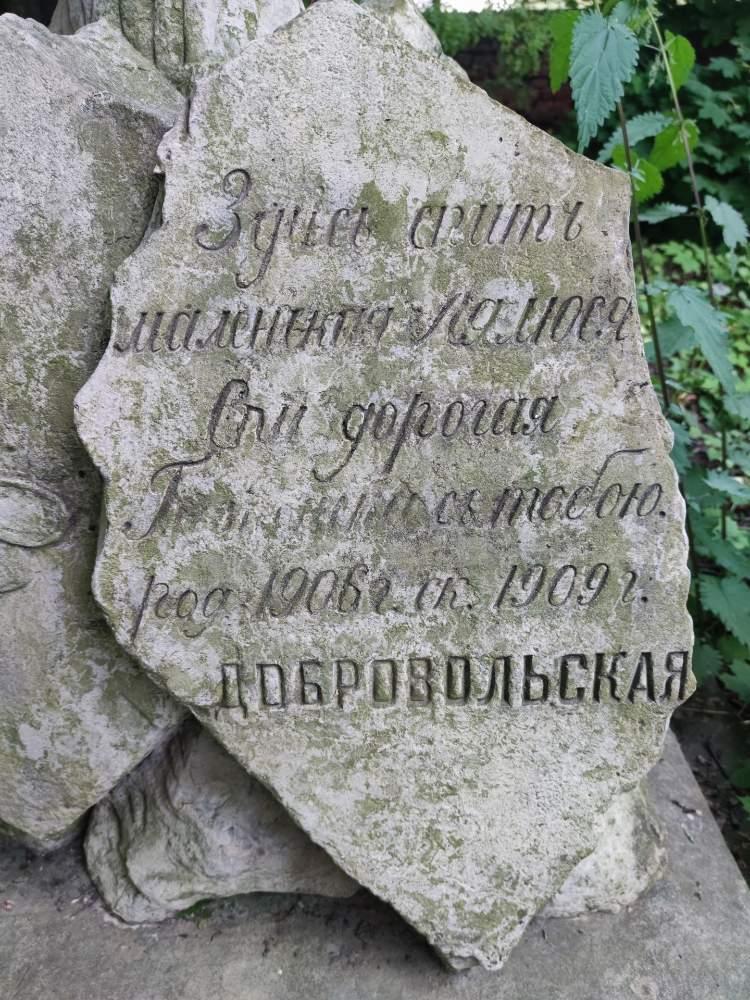 Здѣсь спитъ
маленькая Лялюся
Спи дорогая
съ тобою.
род. 1906 г. ск. 1909 г.
ДОБРОВОЛЬСКАЯ